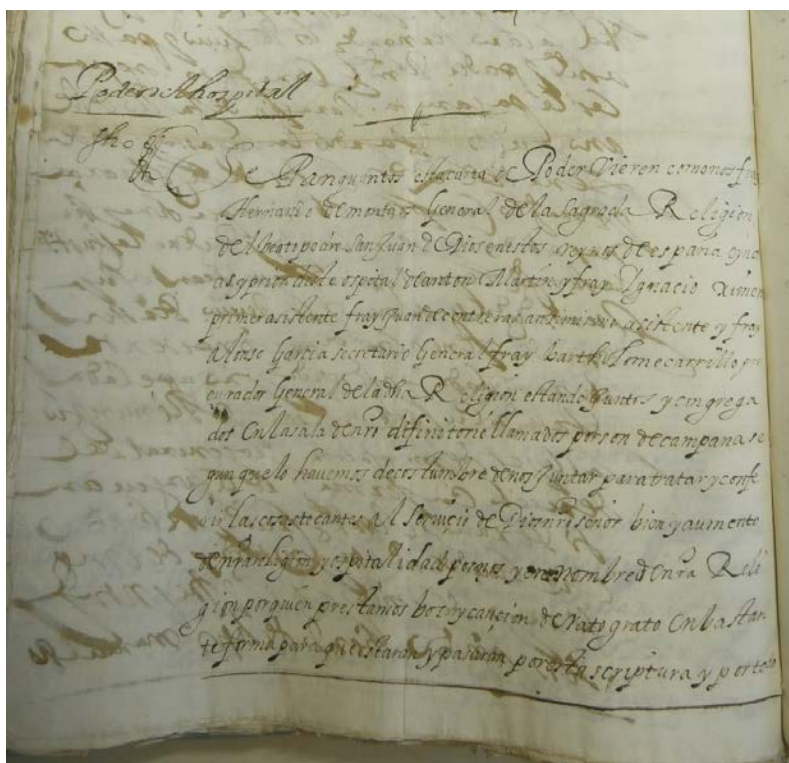 Poder el hospital
fho
Sepan quantos esta carta de Poder Vieren como nos fray
Hernando de montaos General de la Sagrada Religion
del beato padre San Juan de Dios en estos reynos de espana
y prior deste ospital de anton Martin y fray Ignacio Ximen
primer asistente fray Juan de contreras ansimismo asistente y fray
alonso Garcia secretario General fray bartholome carrillo pro
curador General de la dha Religion estando Juntos y congrega
dos en la sala de nro difinitorio llamados por son de campana se
gun que lo havemos de costumbre de nos Juntar para tratar y confe
rir las cosas tocantes al Servicio de Dios nro señor bien y aumento
de nra religion y ospitalidad por nos y en nombre de nra Reli
gion por quien prestamos boz y caucion de rato grato en bastan
te forma para que estaran y pasaran por esta scriptura y por lo